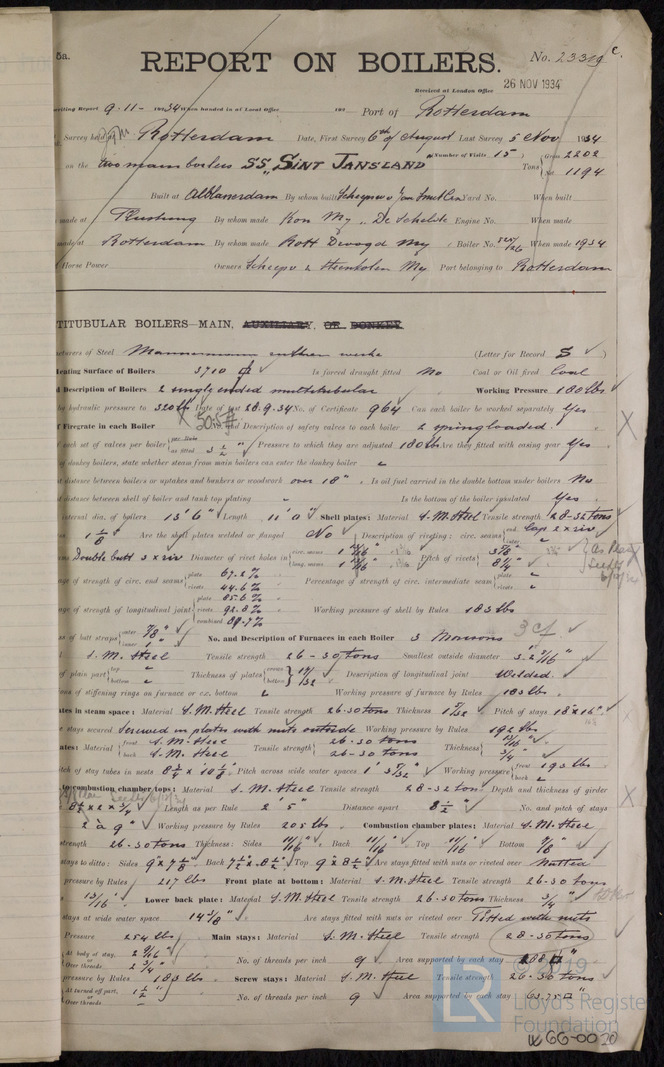 5a.
REPORT ON BOILERS.
No. 23319 c.
Received at London Office
26 NOV 1934
writing Report 9-11- 1934 When handed in at Local Office 193 Port of Rotterdam
Survey held Rotterdam Date, First Survey 6th of August Last Survey 5 Nov 1934
on the two main boilers SS. SINT JANSLAND (Number of Visits 15) Tons Gross 2202
Net 1194
Built at Alblasserdam By whom built Yard No. When built
made at By whom made Kon My. De Schelde Engine No. When made
made at Rotterdam By whom made Rott Droogd My Boiler No. 525/26 When made 1934
Horse Power Owners Scheepv & Steenkolen My Port belonging to Rotterdam
TITUBULAR BOILERS—MAIN, AUXILIARY, OR DONKEY
cturers of Steel (Letter for Record S)
Heating Surface of Boilers 3710 Is forced draught fitted No Coal or Oil fired Coal
d Description of Boilers 2 single ended multitubular Working Pressure 180 lbs
by hydraulic pressure to 320 lb Date of test 28.9.34 No. of Certificate 964 Can each boiler be worked separately Yes
f Firegrate in each Boiler 50.5 nd Description of safety valves to each boiler 2 springloaded
f each set of valves per boiler per Rule as fitted 3 1/2" Pressure to which they are adjusted 180 lbs Are they fitted with easing gear Yes
of donkey boilers, state whether steam from main boilers can enter the donkey boiler
st distance between boilers or uptakes and bunkers or woodwork over 18" Is oil fuel carried in the double bottom under boilers No
st distance between shell of boiler and tank top plating Is the bottom of the boiler insulated Yes
internal dia. of boilers 13' 6" Length 11' 0" Shell plates: Material S.M. Steel Tensile strength 28-32 tons
1 1/8" Are the shell plates welded or flanged No Description of riveting: circ. seams end Lap 2 x riv
inter.
ms Double butt 3 x riv Diameter of rivet holes in circ. seams long. seams Pitch of rivets 3 7/8"
8 1/4"
age of strength of circ. end seams plate 67.2%
rivets 44.6% Percentage of strength of circ. intermediate seam plate
rivets
age of strength of longitudinal joint plate 85.6%
rivets 92.8% Working pressure of shell by Rules 183 lbs
combined 89.7%
ss of butt straps outer 7/8"
inner 1" No. and Description of Furnaces in each Boiler 3 Morisons 3 cf
l S.M. Steel Tensile strength 26-30 tons Smallest outside diameter
of plain part top
bottom Thickness of plates crown
bottom 17/32 Description of longitudinal joint Welded
ons of stiffening rings on furnace or c.c. bottom Working pressure of furnace by Rules 183 lbs
ates in steam space: Material S.M. Steel Tensile strength 26-30 tons Thickness Pitch of stays 18" x 16"
e stays secured Screwed in plates with nuts outside Working pressure by Rules 192 lbs
ates: Material front S.M. Steel
back S.M. Steel Tensile strength 26-30 tons
26-30 tons Thickness
3/4"
itch of stay tubes in nests Pitch across wide water spaces Working pressure front 193 lbs
back
to combustion chamber tops: Material S.M. Steel Tensile strength 28-32 tons Depth and thickness of girder
8 1/2 x 2 x 3/4 Length as per Rule 2' 5" Distance apart 8 1/2" No. and pitch of stays
2 à 9" Working pressure by Rules 205 lbs Combustion chamber plates: Material S.M. Steel
strength 26-30 tons Thickness: Sides 11/16" Back 11/16" Top 11/16" Bottom 7/8"
stays to ditto: Sides 9" x 7 1/2" Back 7 1/2" x 8 1/2" Top 9" x 8 1/2" Are stays fitted with nuts or riveted over Nutted
pressure by Rules 217 lbs Front plate at bottom: Material S.M. Steel Tensile strength 26-30 tons
s 13/16" Lower back plate: Material S.M. Steel Tensile strength 26-30 tons Thickness 3/4"
stays at wide water space 14 3/8" Are stays fitted with nuts or riveted over Fitted with nuts
Pressure 254 lbs Main stays: Material S.M. Steel Tensile strength 28-30 tons
At body of stay,
or
Over threads 2 9/16"
2 3/4" No. of threads per inch 9 Area supported by each stay 288 □"
pressure by Rules 183 lbs Screw stays: Material S.M. Steel Tensile strength 26-30 tons
At turned off part,
or
Over threads 1 1/2" No. of threads per inch 9 Area supported by each stay 63.75 □"
© 2019
LR Lloyd's Register
Foundation
W66-0020